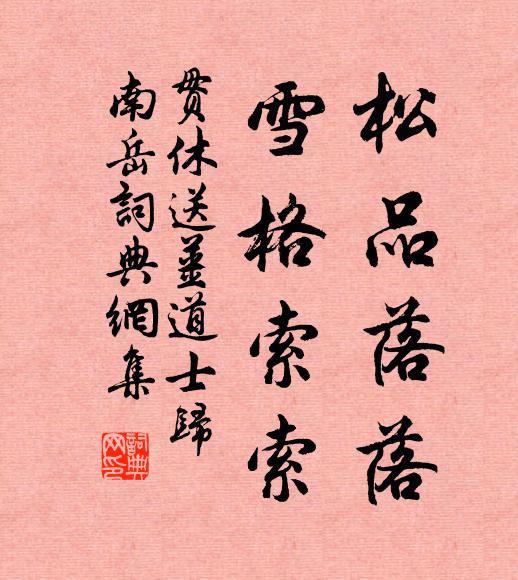 松品落落
雪格索索
貫休送薑道士歸
南岳詞典網集
詞典网印